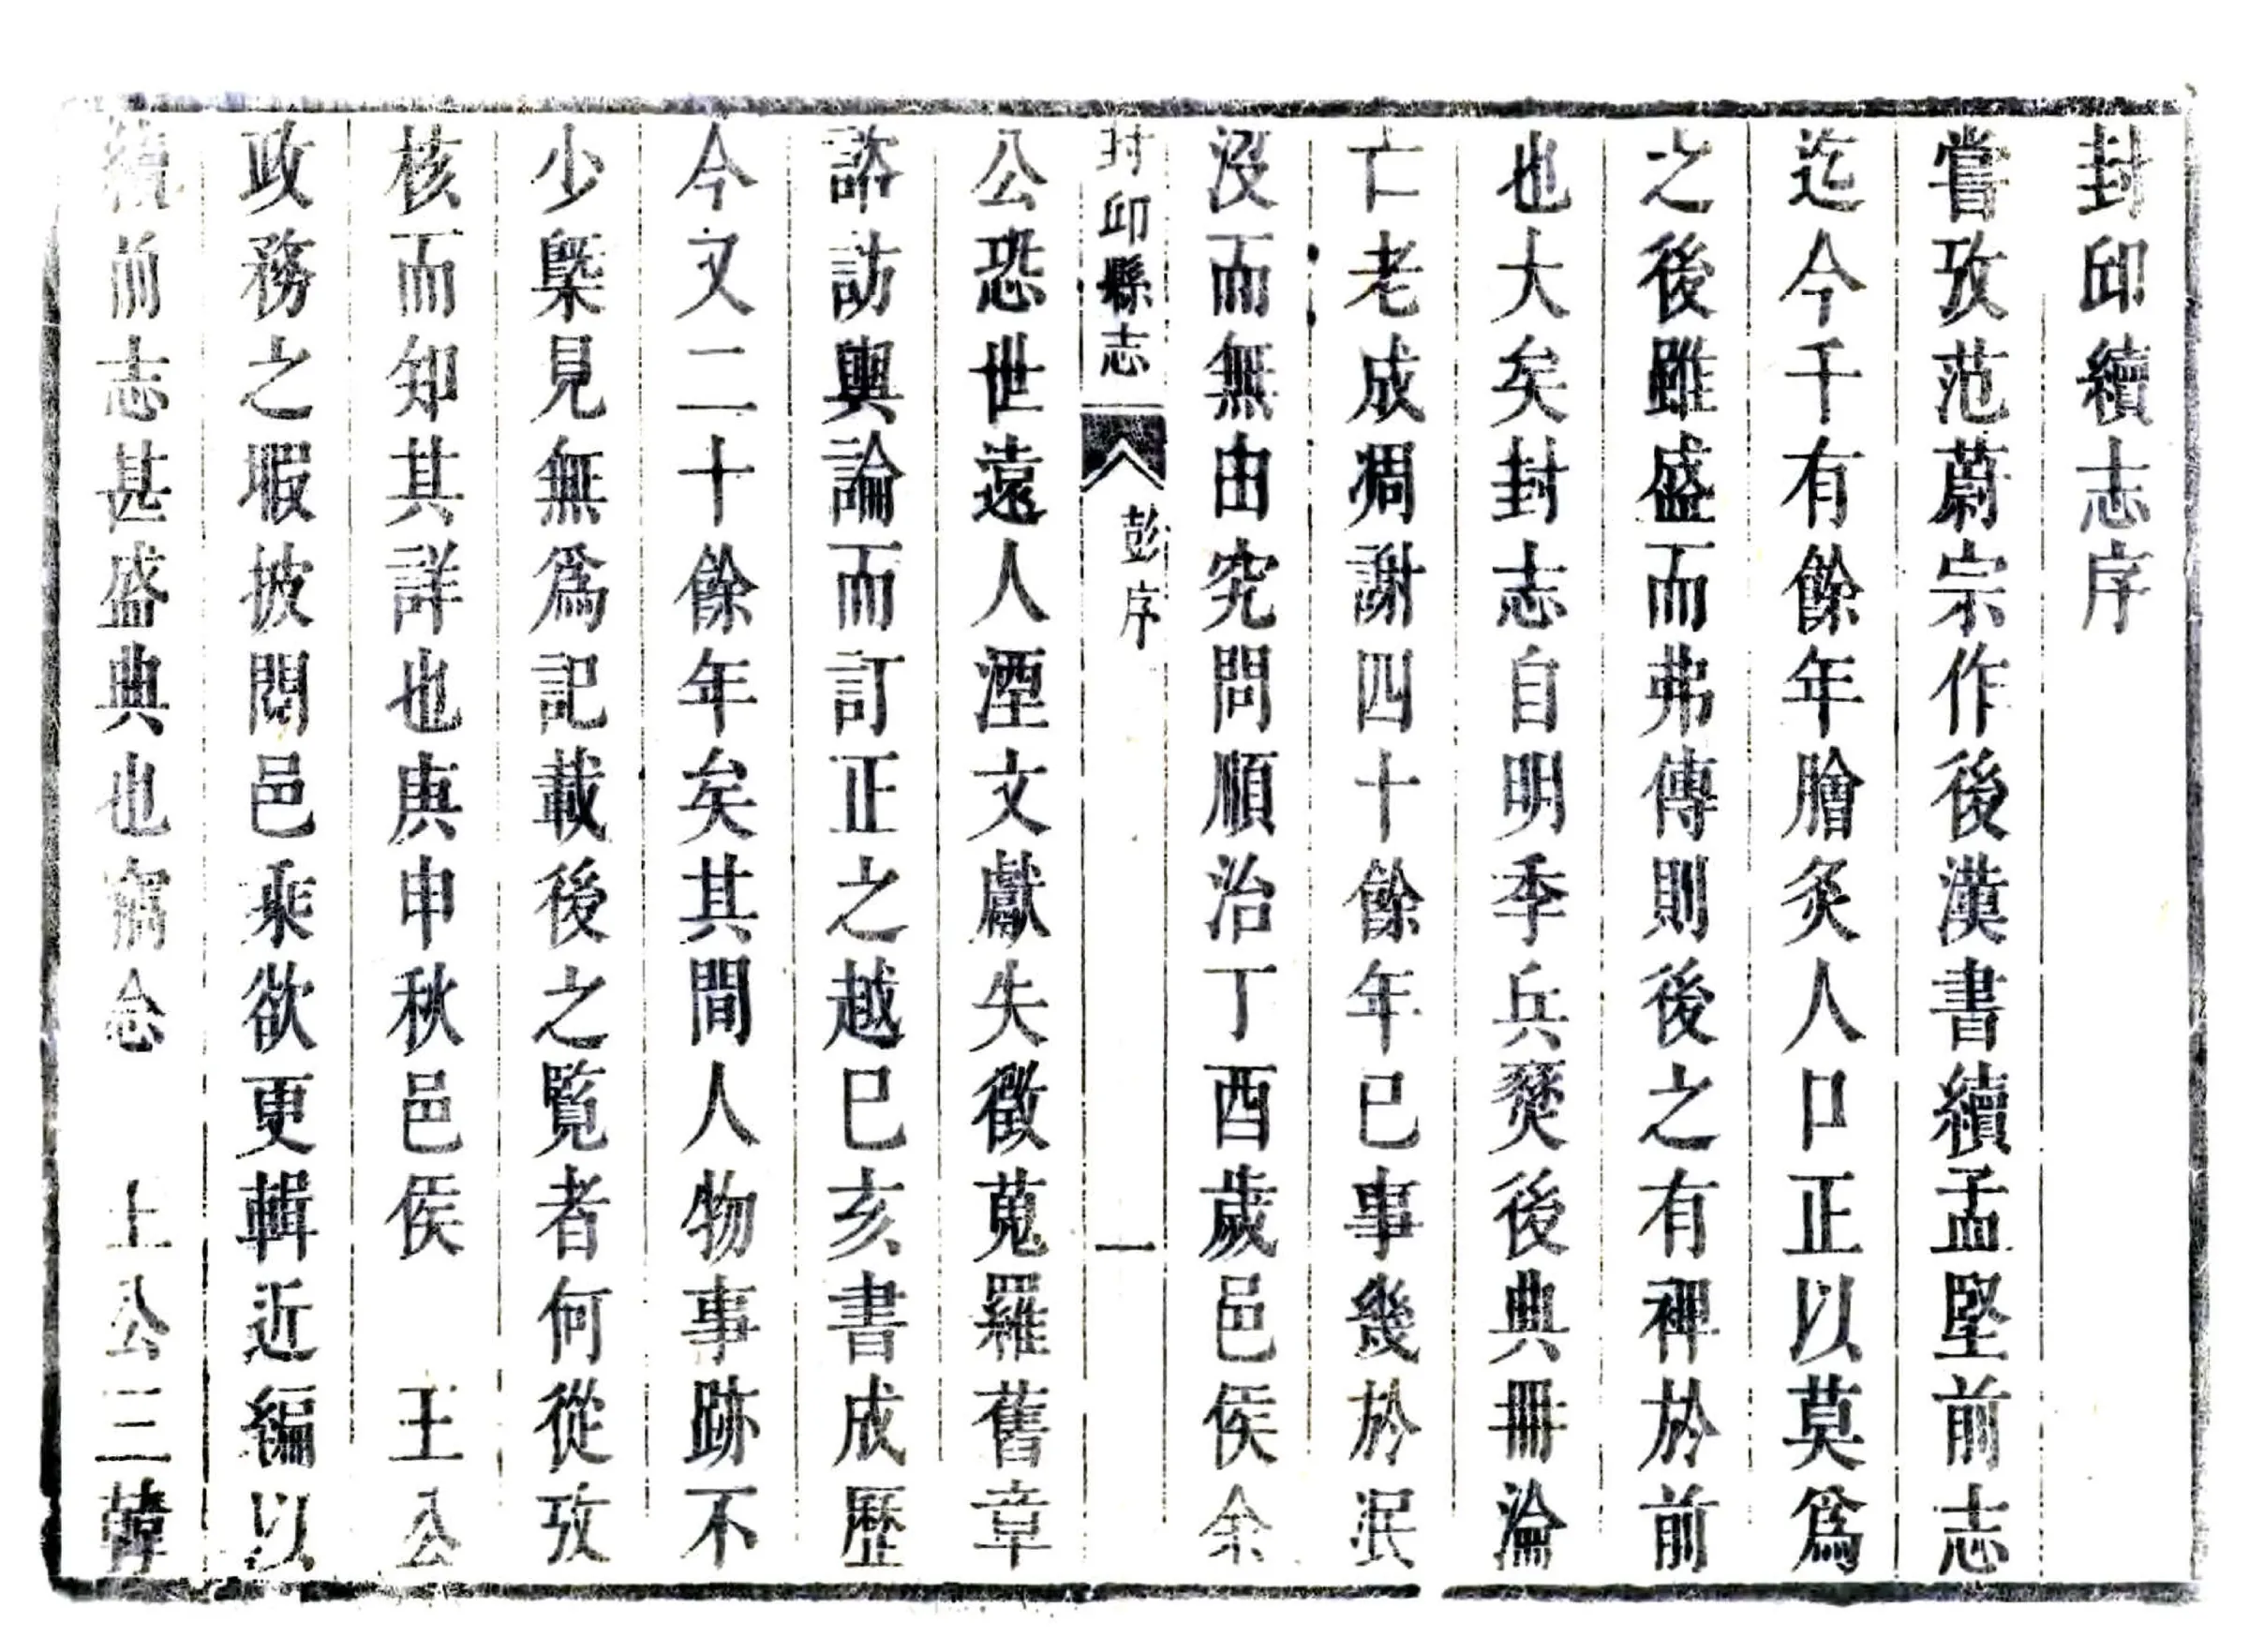 封邱續志序
嘗攷范蔚宗作後漢書續孟堅前志
迄今千有餘年膾炙人口正以莫爲
之後雖盛而弗傳則後之有裨於前
也大矣封志自明季兵燹後典冊淪
亡老成凋謝四十餘年已事幾於泯
沒而無由究問順治丁酉歲邑侯余
封邱縣志
彭序
一
公恐世遠人湮文獻失徵蒐羅舊章
諮訪輿論而訂正之越巳亥書成歷
今又二十餘年矣其間人物事跡不
少槩見無爲記載後之覧者何從攷
核而知其詳也庚申秋邑侯 王公
政務之暇披閱邑乘欲更輯近編以
續前志甚盛典也竊念 王公三韓